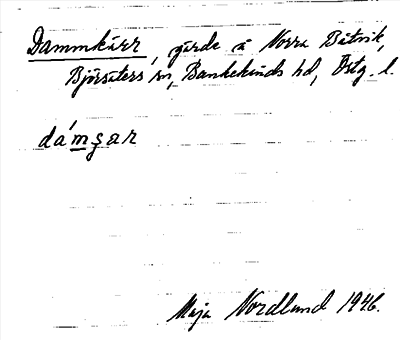 Dammkärr, gärde å Norra Båtvik,
Björsäters sn, Bankekinds hd, Östg. l.
dám̲ʂar
Maja Nordlund 1946.